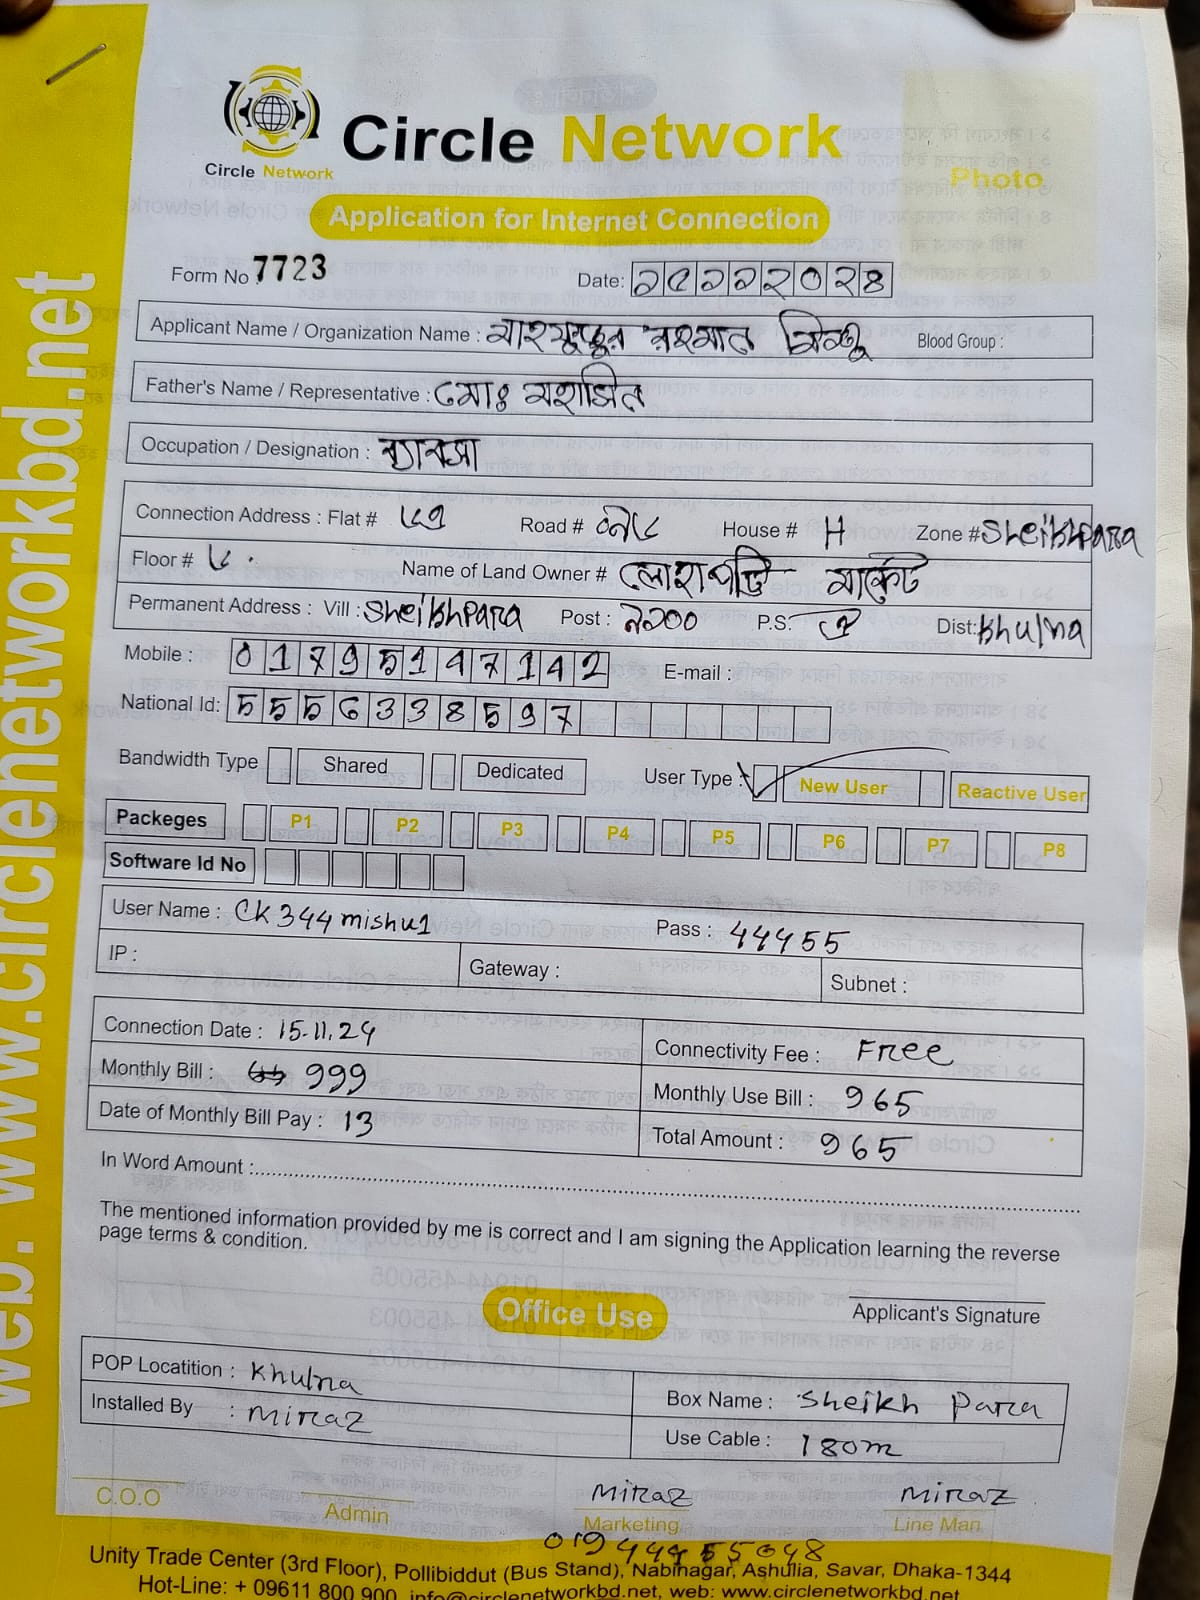 web: www.circlenetworkbd.net
Circle Network
Circle Network
Photo
Application for Internet Connection
Form No 7723
Date: ১৫১১২০২৪
Applicant Name / Organization Name : মাহফুজুর রহমান মিশু Blood Group :
Father's Name / Representative : মোঃ
Occupation / Designation : ব্যাবসা
Connection Address : Flat # Road # House # H Zone # Sheikhpara
Floor # Name of Land Owner # লোহাপট্টি মার্কেট
Permanent Address : Vill : Sheikhpara Post : ৯১০০ P.S. Dist: Khulna
Mobile : 01795147142 E-mail :
National Id: 5556338597
Bandwidth Type Shared Dedicated User Type : New User Reactive User
Packeges P1 P2 P3 P4 P5 P6 P7 P8
Software Id No
User Name : CK344mishu1 Pass : 44455
IP : Gateway : Subnet :
Connection Date : 15.11.24 Connectivity Fee : Free
Monthly Bill : 999 Monthly Use Bill : 965
Date of Monthly Bill Pay : 13 Total Amount : 965
In Word Amount :
The mentioned information provided by me is correct and I am signing the Application learning the reverse
page terms & condition.
Applicant's Signature
Office Use
POP Locatition : Khulna Box Name : Sheikh Para
Installed By : Miraz Use Cable : 180m
Miraz Miraz
C.O.O Admin Marketing Line Man
Unity Trade Center (3rd Floor), Pollibiddut (Bus Stand), Nabinagar, Ashulia, Savar, Dhaka-1344
Hot-Line: + 09611 800 900, info@circlenetworkbd.net, web: www.circlenetworkbd.net